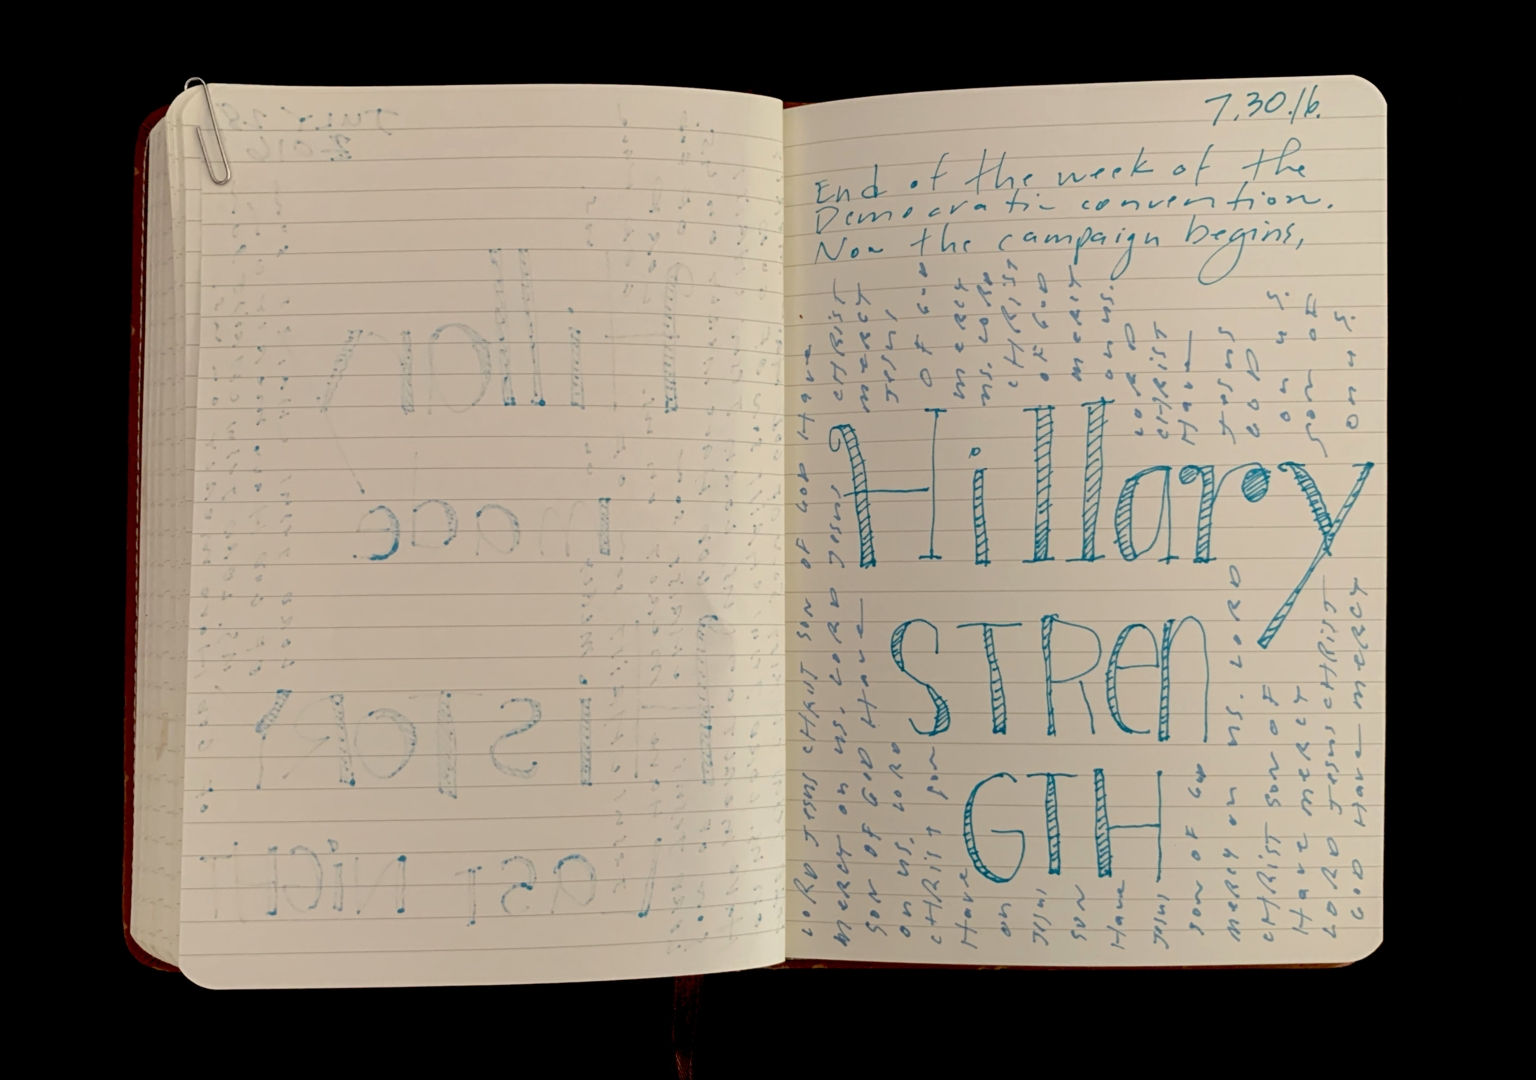 7.30.16.
End of the week of the
Democratic convention.
Now the campaign begins,
Hillary
STRen
GTH
LORD JESUS CHRIST SON OF GOD Have
CHRIST
mercy on us. LORD JESUS
mercy
Son OF GOD Have
JESUS
on us. LORD
OF GOD
CHRIST Son
mercy
Have
us. LORD
on
CHRIST
JESUS
OF GOD
Son
mercy
Have
on us.
JESUS
LORD
CHRIST
son OF GOD
Have
mercy on us. LORD
JESUS
GOD
CHRIST Son OF
on us
Have mercy
son OF
LORD JESUS CHRIST
on us
GOD Have mercy
JULY 29
2016
Hillary
made
HISTORY
LAST NIGHT